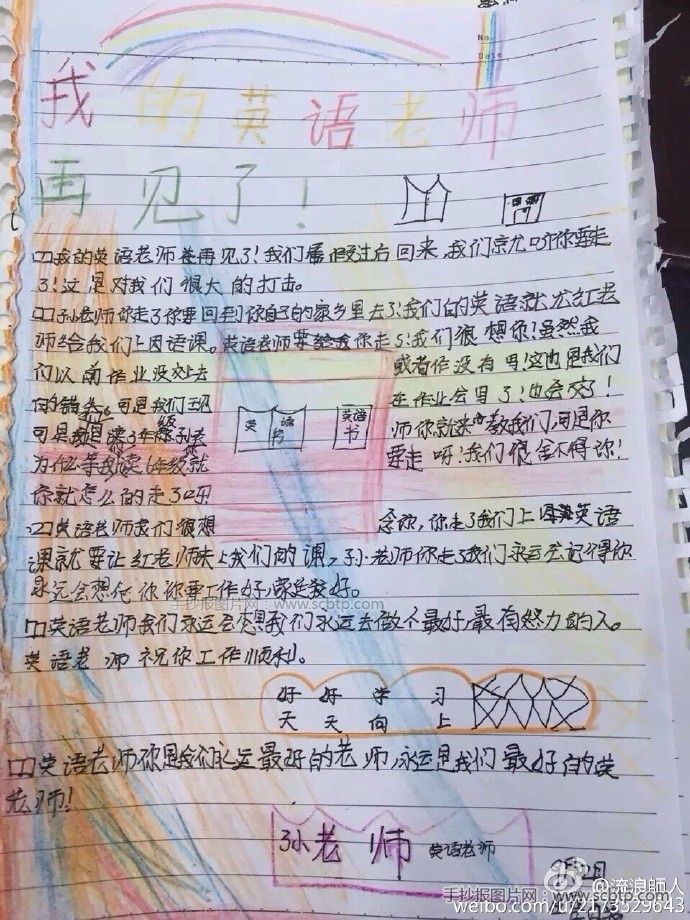 No.
Date
我的英语老师
再见了!
我的英语老师再见了!我们暑假过后回来,我们就听你要走
了!这是对我们很大的打击。
孙老师你走了你要回到你自己的家乡里去了!我们的英语就让红老
师给我们上因语课。英语老师你走了!我们很想你!虽然我
们以前作业没交上去 或者作没有写!这也是我们
的错 可是我们现 在作业会写了!也会交了!
可是我但读3年级 师你就来教我们,可是你
为什么等我读6年级就 要走呀!我们很舍不得你!
你就怎么的走了呀
英 语 书
英语书
英语老师我们很想 念你,你走了我们上英语
课就要让红老师来上我们的课,孙老师你走了我们永远记得你
永远会想你你要工作好,家庭好。
英语老师我们永运会想我们永运去做个最好,最有努力的人。
英语老师祝你工作顺利。
好好学习
天天向上
英语老师你是我们永运最好的老师,永运是我们最好的英
老师!
孙老师 英语老师
手抄报图片网:www.scbtp.com
手抄报图片网:www.scbtp.com
@流浪師人
weibo.com/u/2173529643